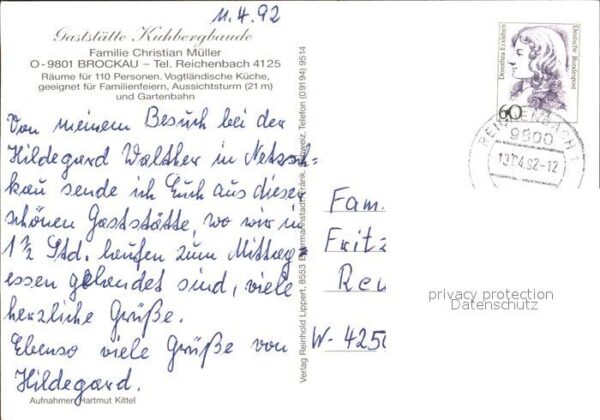 11.4.92
Gaststätte Kuhbergbaude
Familie Christian Müller
O-9801 BROCKAU – Tel. Reichenbach 4125
Räume für 110 Personen. Vogtländische Küche,
geeignet für Familienfeiern, Aussichtsturm (21 m)
und Gartenbahn
Von meinem Besuch bei der
Hildegard Walther in Netzsch=
kau sende ich Euch aus dieser
schönen Gaststätte, wo wir in
1½ Std. laufen zum Mittag=
essen gelandet sind, viele
herzliche Grüße.
Ebenso viele Grüße von
Hildegard.
Aufnahmen Hartmut Kittel
Verlag Reinhold Lippert, 8553 Ebermannstadt/Fränk. Schweiz, Telefon (09194) 9514
Dorothea Erxleben
Deutsche Bundespost
60
REICHENBACH 1
9800
92-12
Fam.
Fritz
W-425
privacy protection
Datenschutz